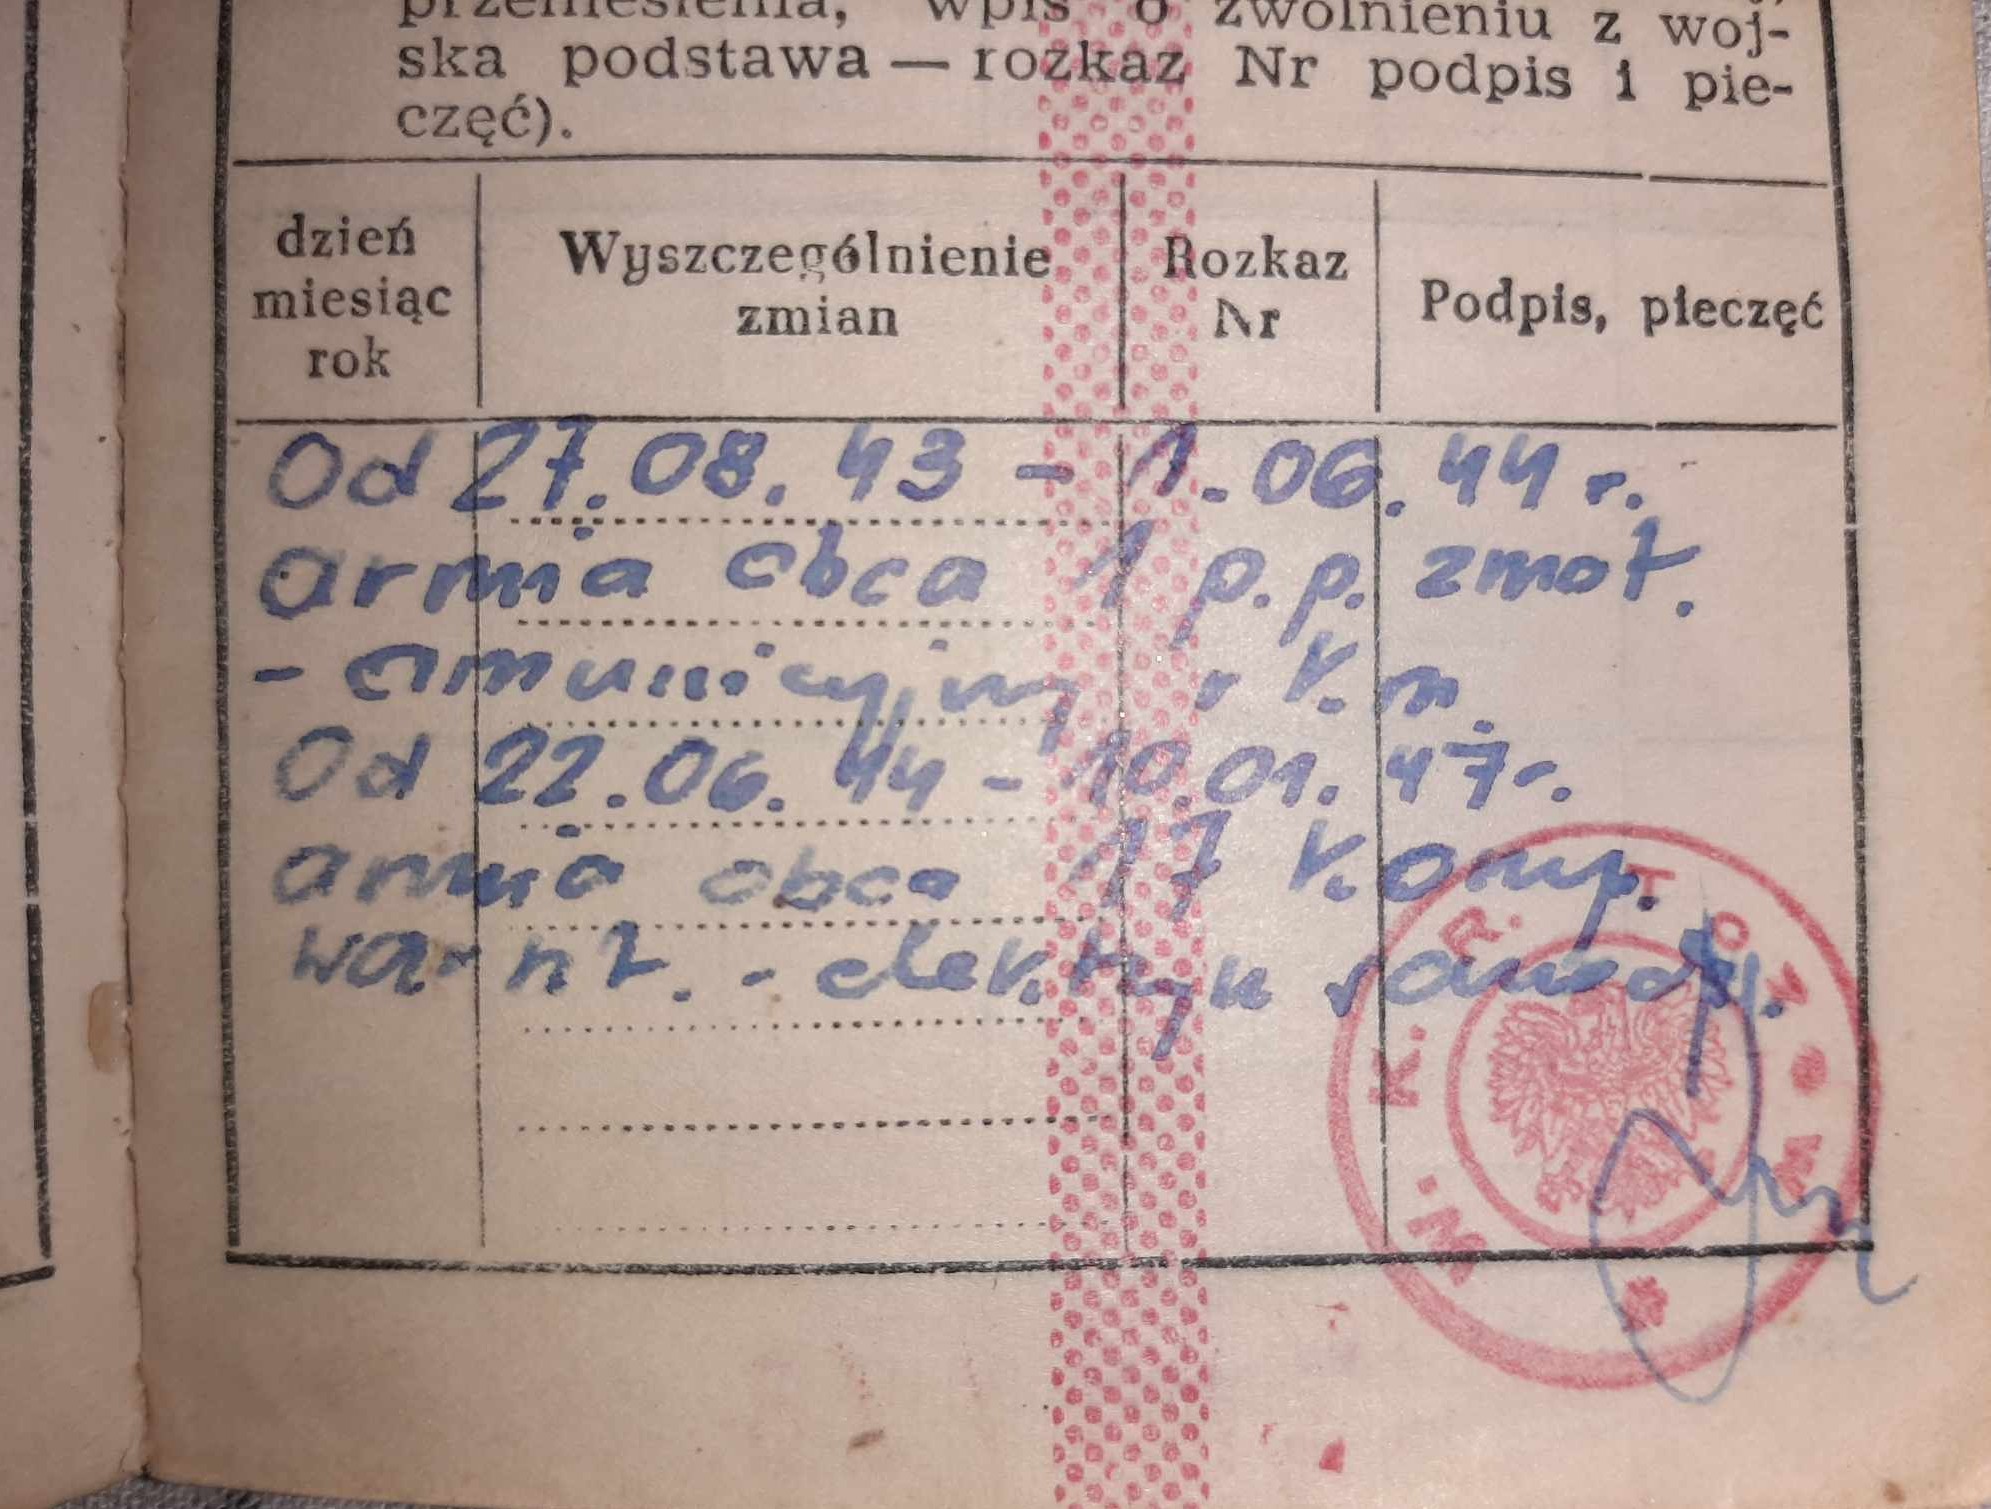 przeniesienia, wpis o zwolnieniu z woj-
ska podstawa — rozkaz Nr podpis i pie-
częć).
dzień
miesiąc
rok
Wyszczególnienie
zmian
Rozkaz
Nr
Podpis, pieczęć
Od 27.08.43 - 1.06.44 r.
armia obca 1 p.p. zmot.
- amunicyjny r.k.m.
Od 22.06.44 - 10.01.47 r.
armia obca 17 komp.
warszt. - elektryk samoch.
W. K. R. TOR